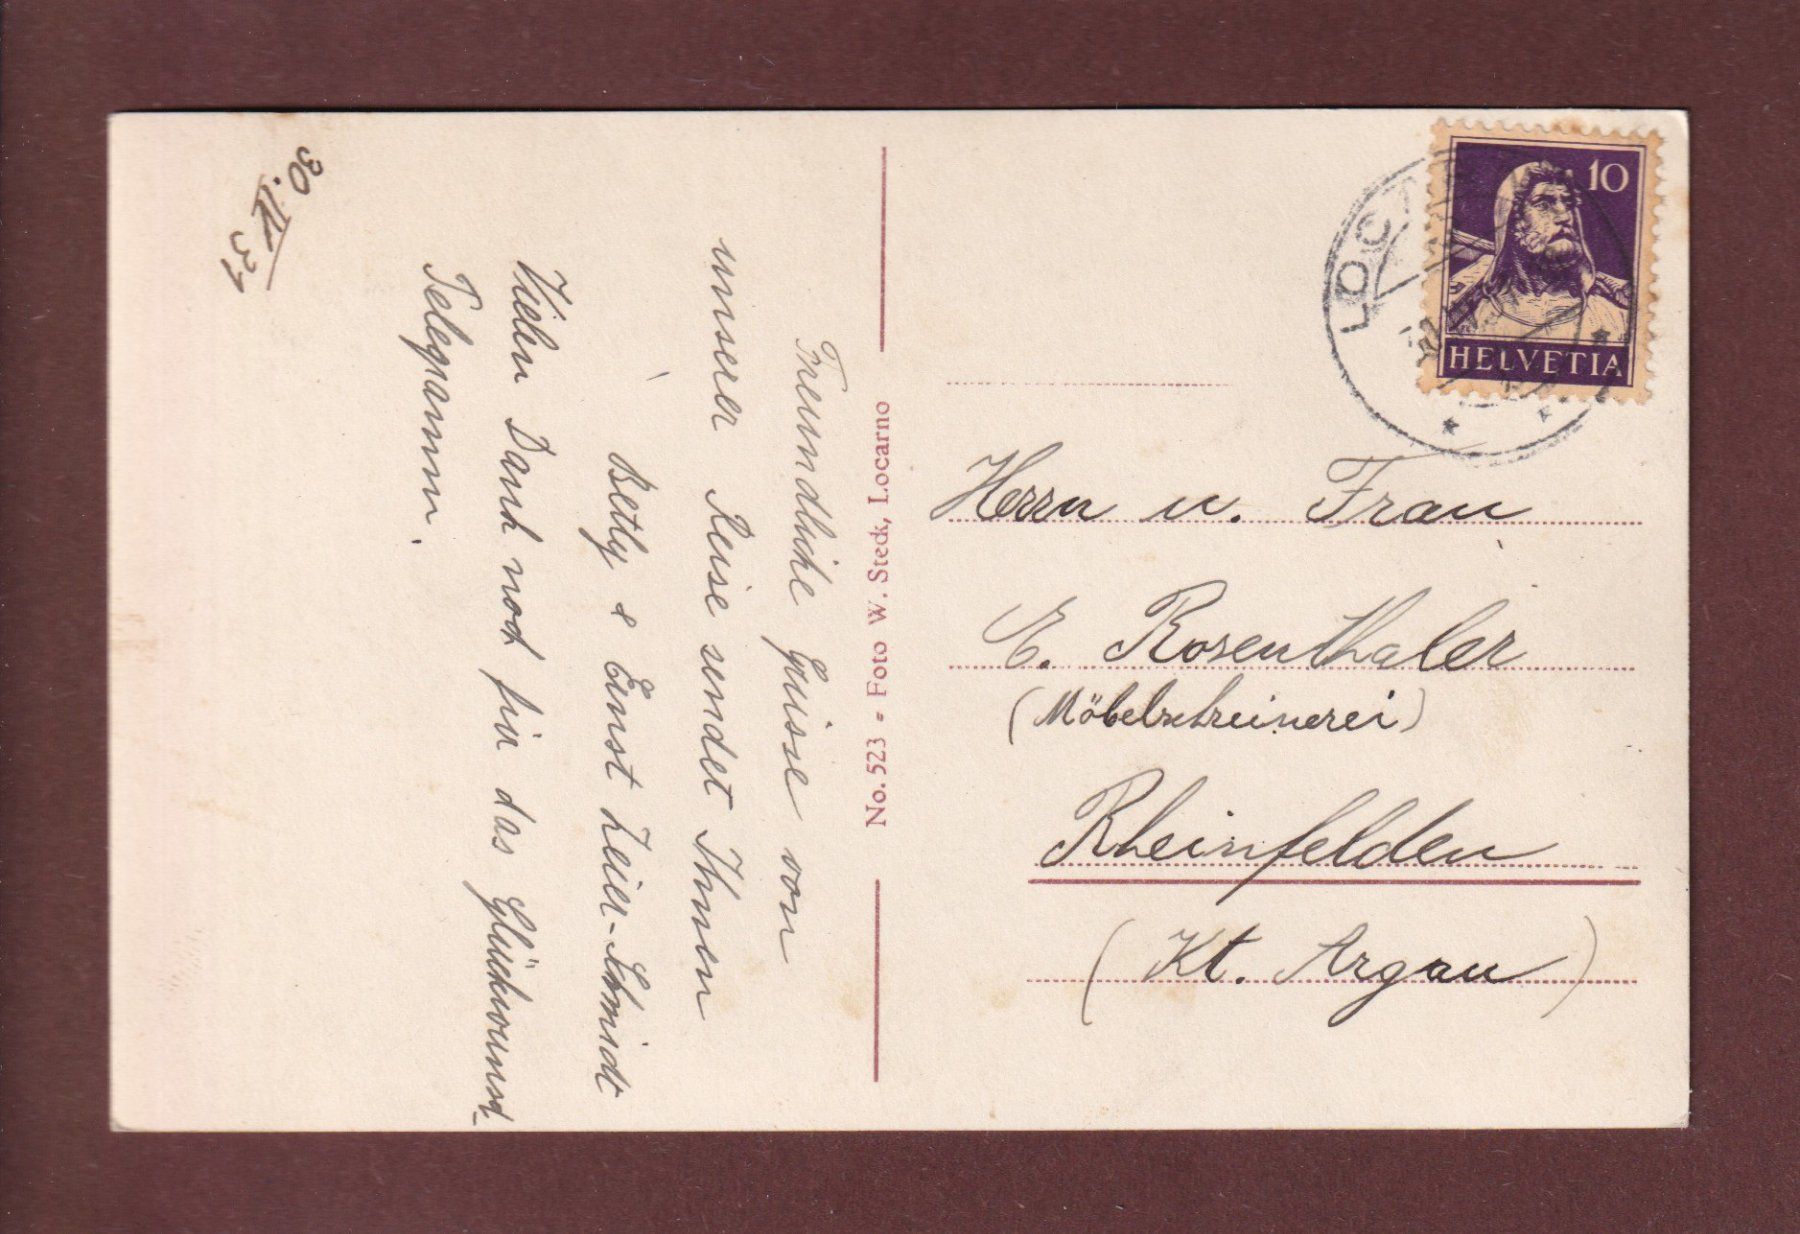 Freundliche Grüsse von
unserer Reise sendet Ihnen
Betty & Ernst Zeier-Schmidt
Vielen Dank noch für das Glückwunsch-
Telegramm.
30. 31
No. 523 - Foto W. Steck, Locarno
10
HELVETIA
LOC
Herrn u. Frau
E. Rosenthaler
(Möbelschreinerei)
Rheinfelden
(Kt. Argau)